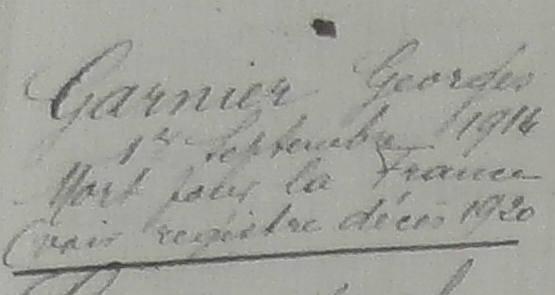 Garnier Georges
1er Septembre 1914
Mort pour la France
(voir registre décès 1920